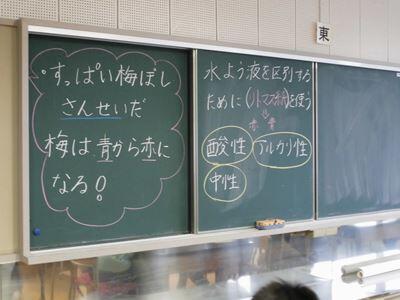 東
・すっぱい梅ぼし
さんせいだ
梅は青から赤に
なる!
水よう液を区別する
ために(リトマス紙)を使う
赤 青
酸性
アルカリ性
中性